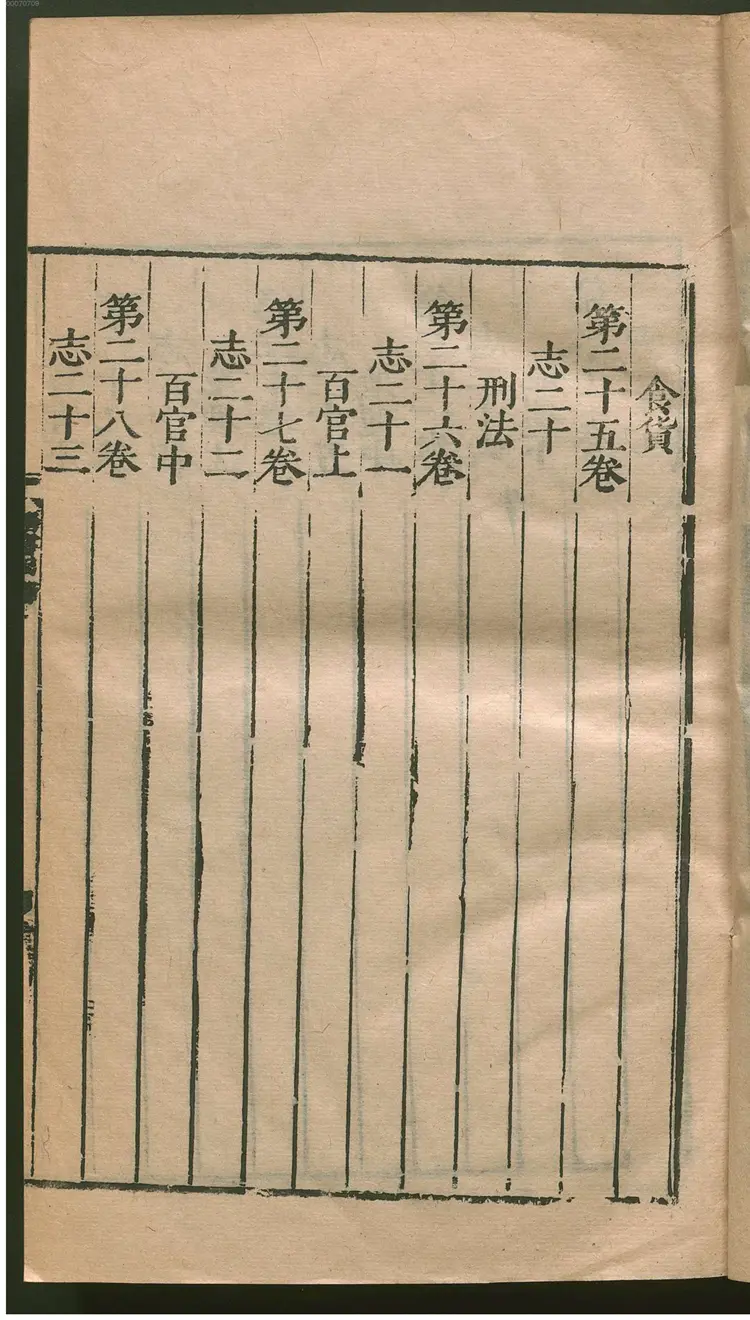 食貨
第二十五卷
志二十
刑法
第二十六卷
志二十一
百官上
第二十七卷
志二十二
百官中
第二十八卷
志二十三